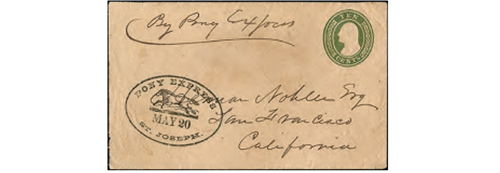 By Pony Express
TEN
CENTS
PONY EXPRESS
MAY 20
ST. JOSEPH.
Nohler Esq
San Francisco
California